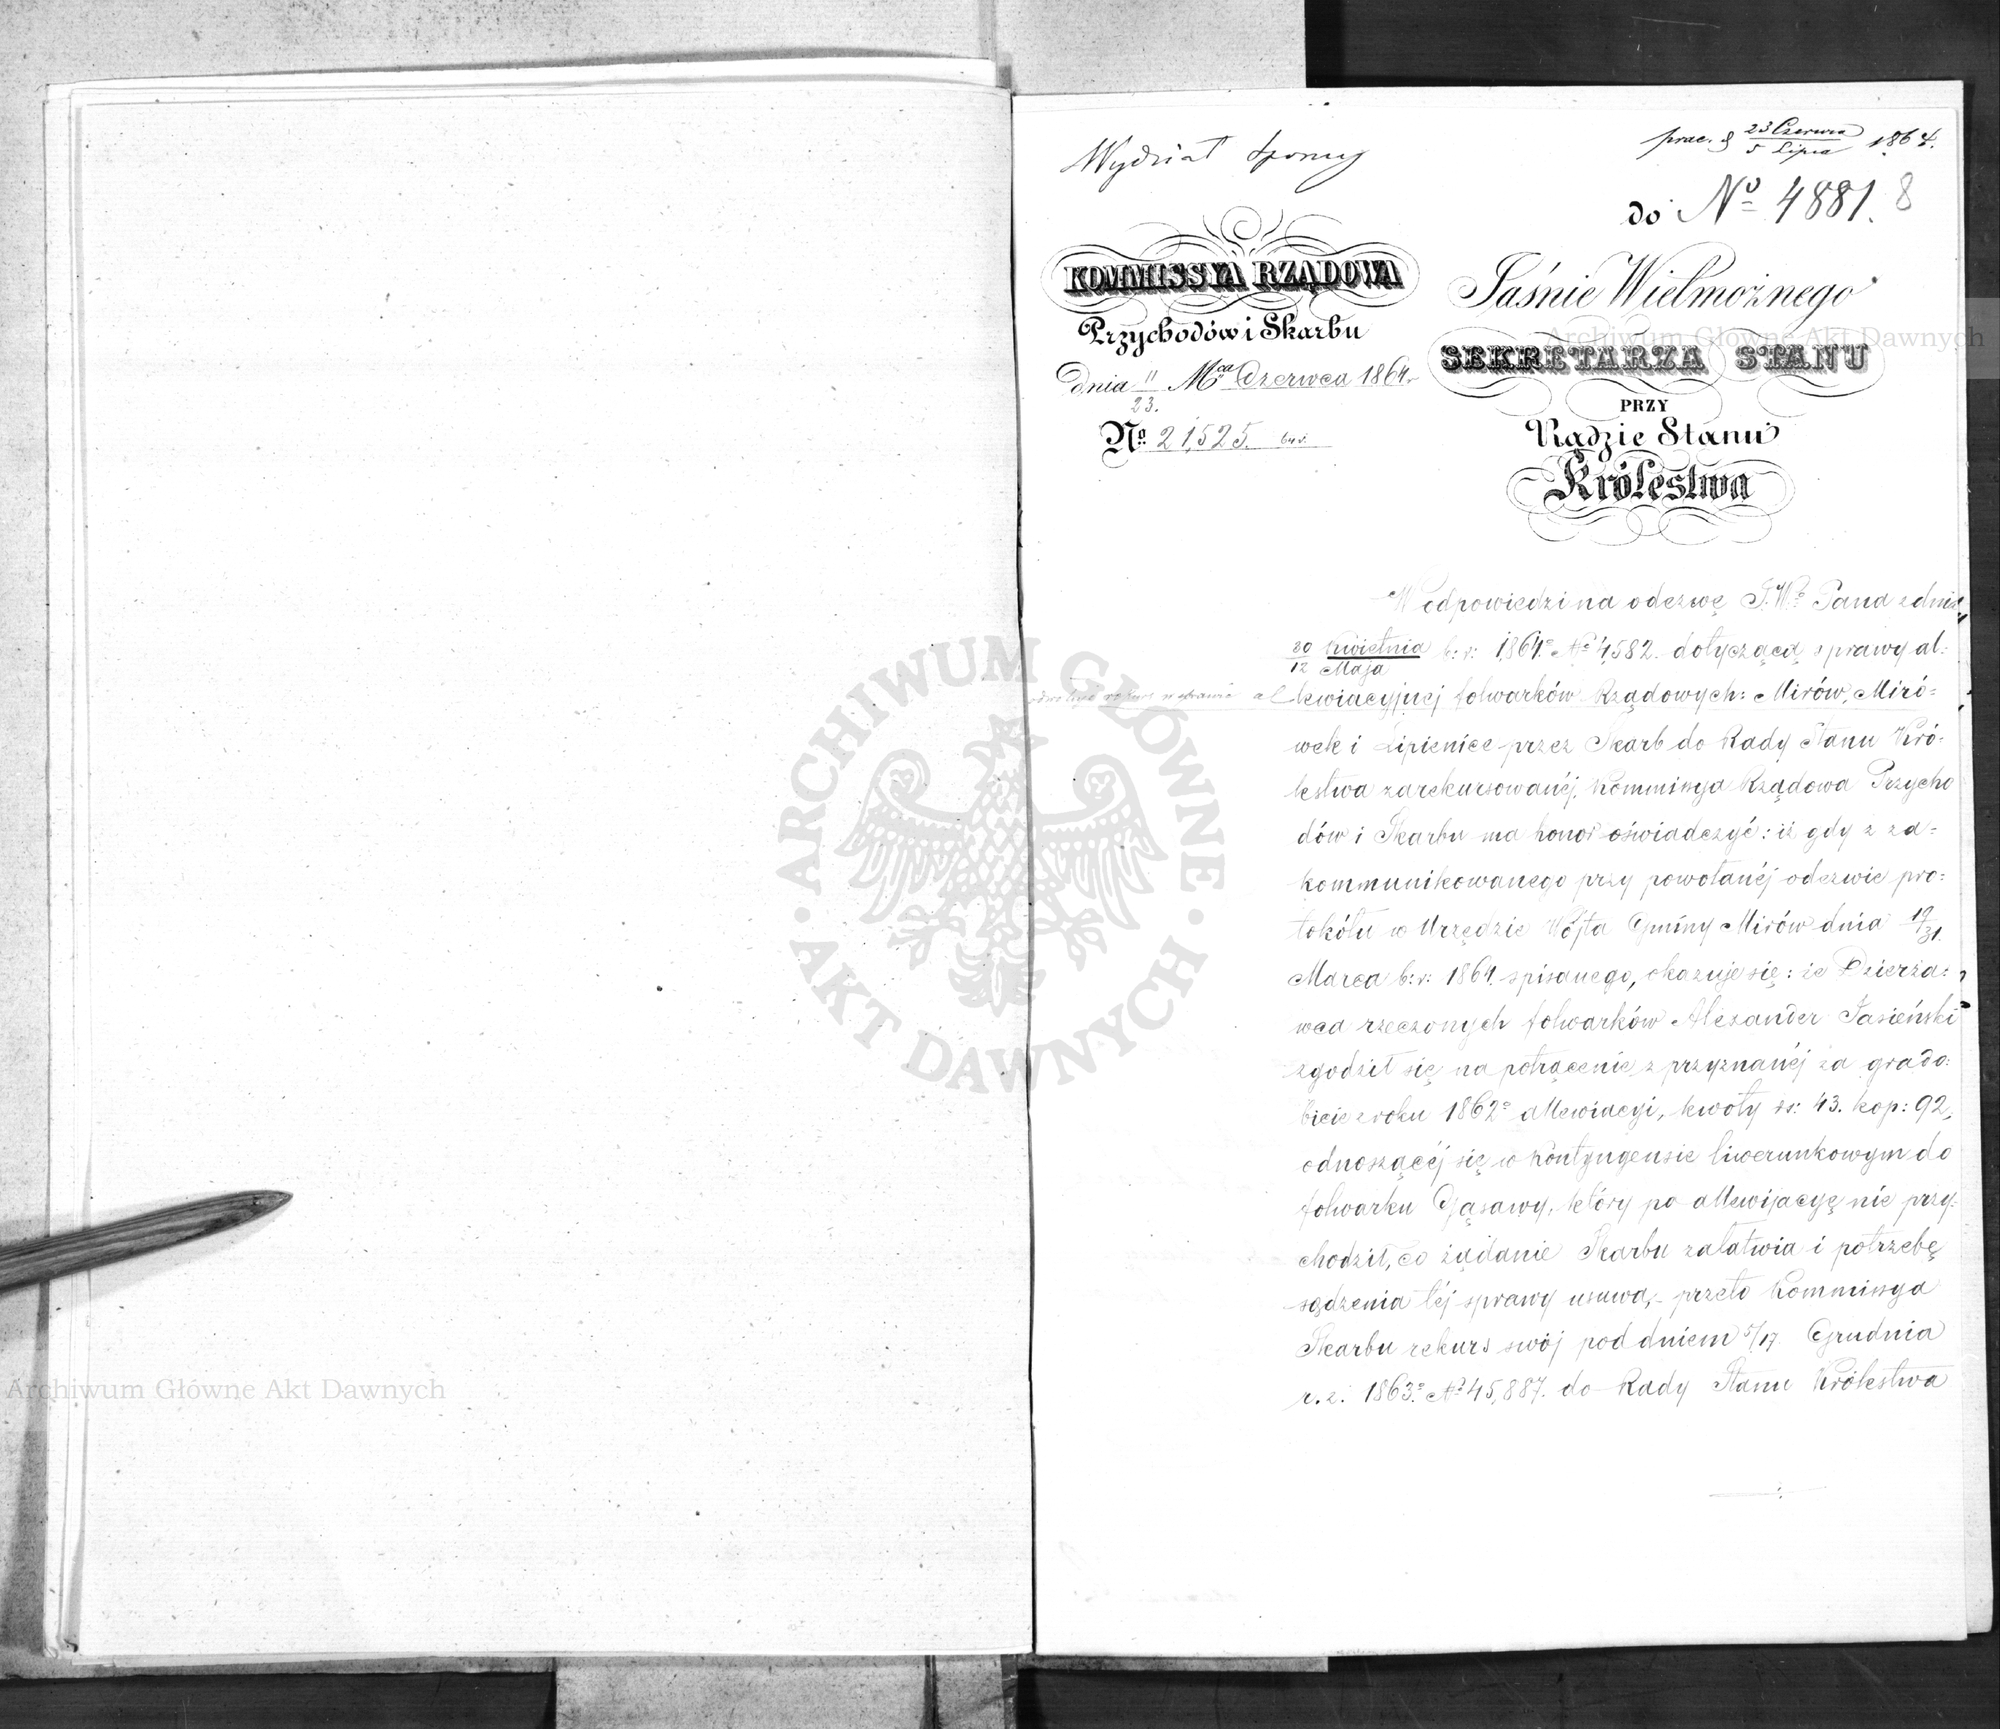 Wydział Sporny
prac. d 23 Czerwca / 5 Lipca 1864.
do Nº 4881. 8
KOMMISSYA RZĄDOWA
Przychodów i Skarbu
dnia 11/23. Mca Czerwca 1864 r
No. 21,525.
Jaśnie Wielmożnego
SEKRETARZA STANU
PRZY
Radzie Stanu
Królestwa
W odpowiedzi na odezwę J.Wo Pana z dnia
30 Kwietnia / 12 Maja b: r: 1864o No 4,582. dotyczącą sprawy al:
lewiacyjnej folwarków Rządowych: Mirów, Miró=
wek i Lipienice przez Skarb do Rady Stanu Kró-
lestwa zarekursowanéj, Kommissya Rządowa Przycho
dów i Skarbu ma honor oświadczyć: iż gdy z za=
kommunikowanego przy powołanéj odezwie pro:
tokółu w Urzędzie Wójta Gminy Mirów dnia 19/31.
Marca b: r: 1864. spisanego, okazuje się: że Dzierża:
wca rzeczonych folwarków Alexander Jasieński
zgodził się na potrącenie z przyznanéj za grado:
bicie z roku 1862o allewiacyi, kwoty rs: 43. kop: 92,
odnoszącéj się w kontyngensie liwerunkowym do
folwarku Gąsawy, który po allewijacyę nie przy:
chodził, co żądanie Skarbu załatwia i potrzebę
sądzenia téj sprawy usuwa, – przeto Kommissya
Skarbu rekurs swój pod dniem 5/17 Grudnia
r. z. 1863o No 45,887. do Rady Stanu Królestwa
ARCHIWUM GŁÓWNE AKT DAWNYCH
Archiwum Główne Akt Dawnych
Archiwum Główne Akt Dawnych